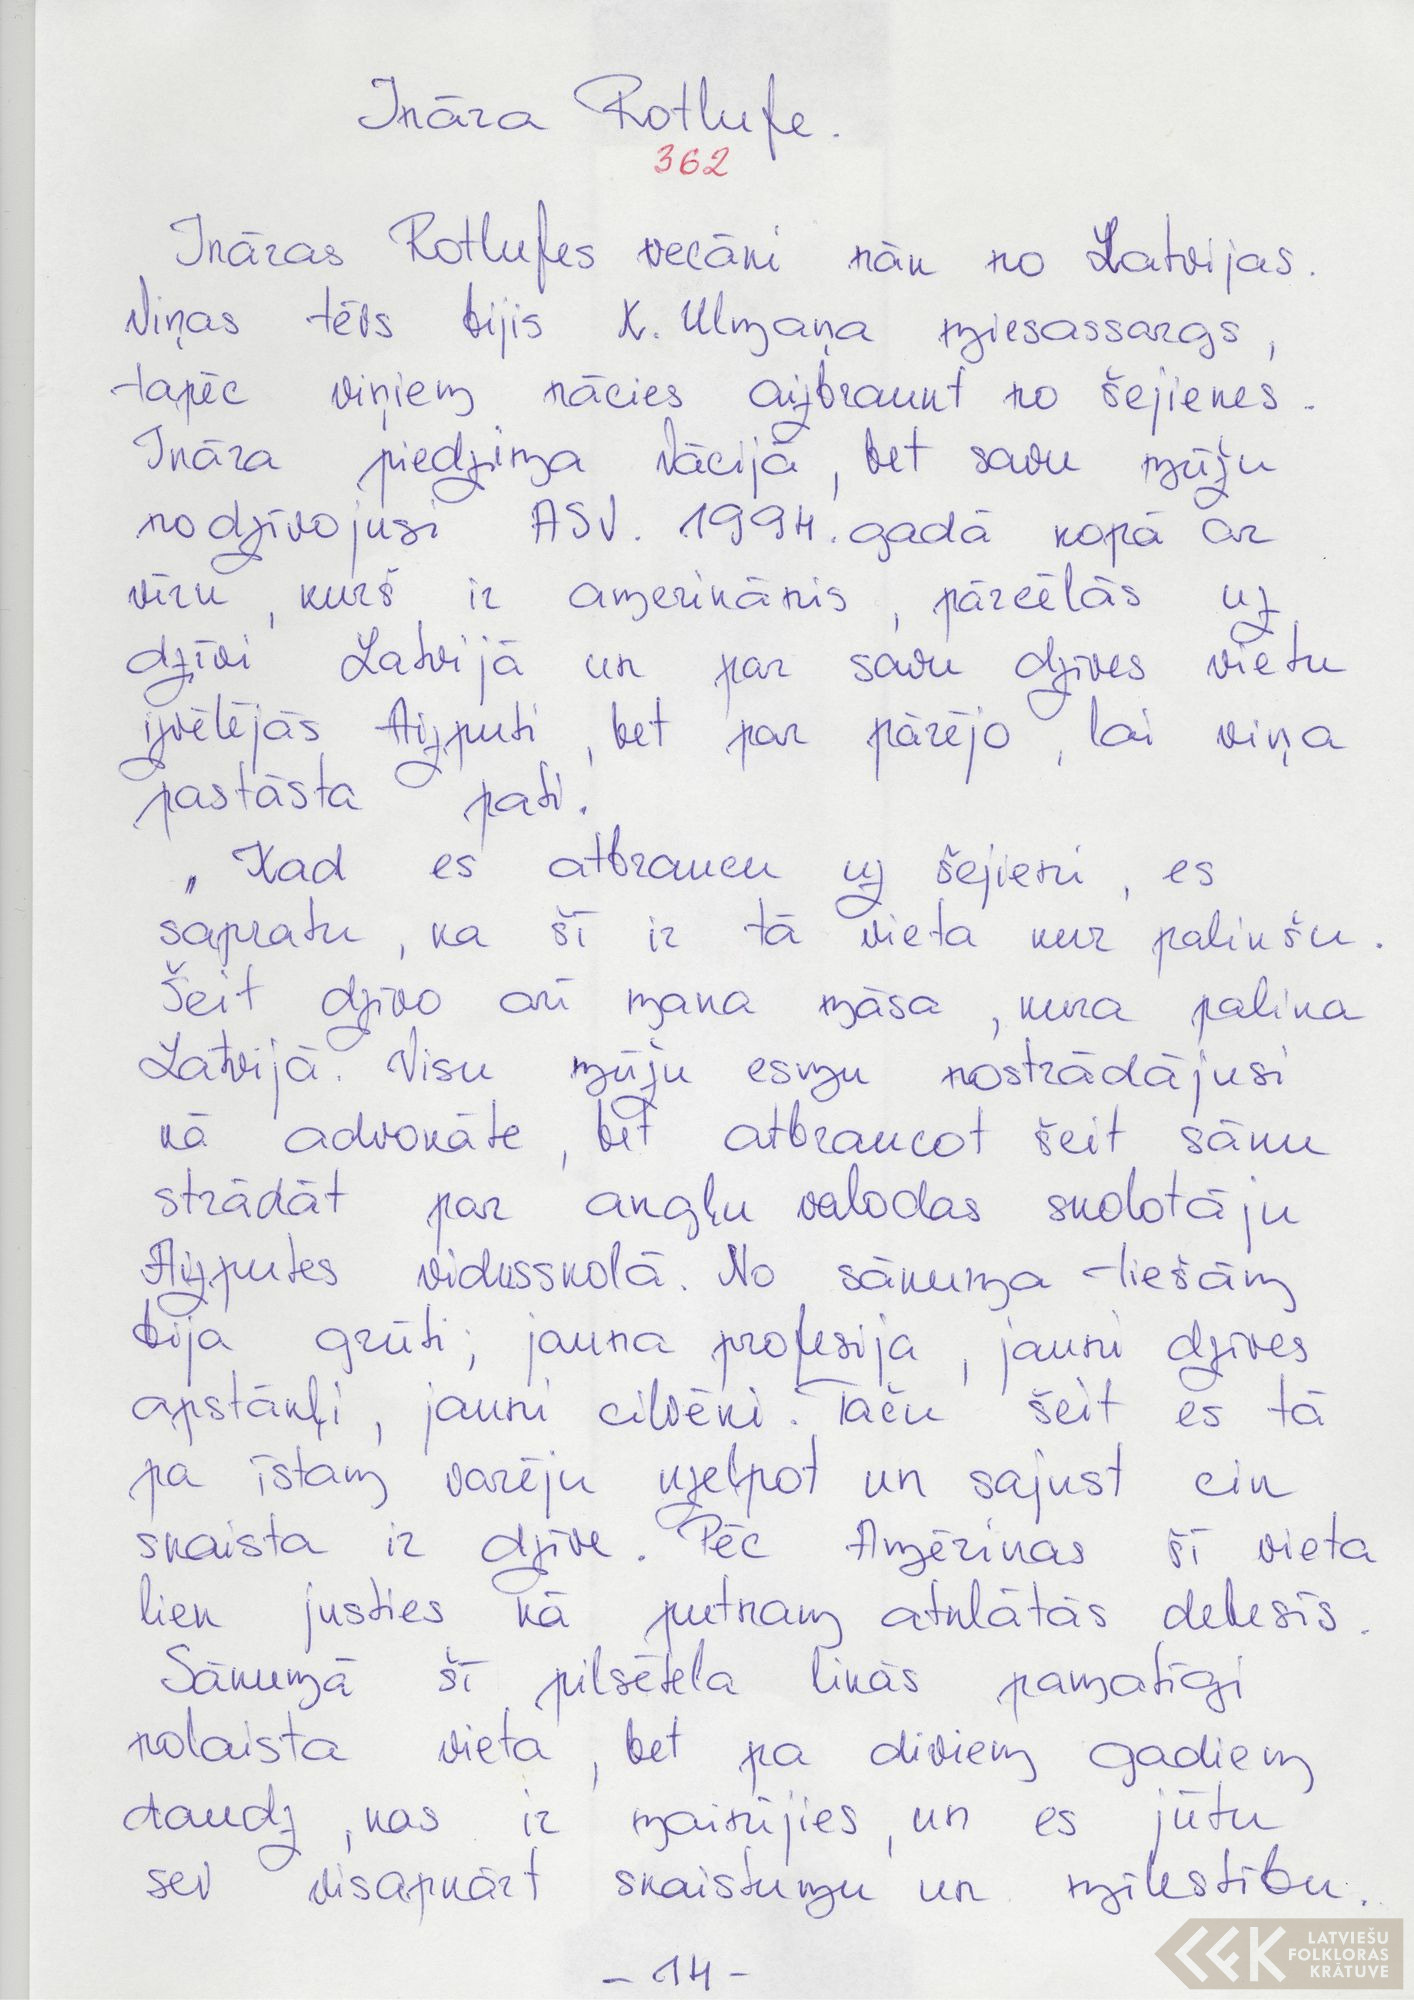 Ināra Rotlufe.
362
Ināras Rotlufes vecāki nāk no Latvijas.
Viņas tēvs bijis K. Ulmaņa miesassargs,
tapēc viņiem nācies aizbraukt no šejienes.
Ināra piedzima Vācijā, bet savu mūžu
nodzīvojusi ASV. 1994. gadā kopā ar
vīru, kurš ir amerikānis, pārcēlās uz
dzīvi Latvijā un par savu dzīves vietu
izvēlējās Aizputi, bet par pārējo, lai viņa
pastāsta pati.
„Kad es atbraucu uz šejieni, es
sapratu, ka šī ir tā vieta kur palikšu.
Šeit dzīvo arī mana māsa, kura palika
Latvijā. Visu mūžu esmu nostrādājusi
kā advokāte, bet atbraucot šeit sāku
strādāt par angļu valodas skolotāju
Aizputes vidusskolā. No sākuma tiešām
bija grūti; jauna profesija, jauni dzīves
apstākļi, jauni cilvēki. Taču šeit es tā
pa īstam varēju uzelpot un sajust cik
skaista ir dzīve. Pēc Amērikas šī vieta
liek justies kā putnam atklātās debesīs.
Sākumā šī pilsētela likās pamatīgi
nolaista vieta, bet pa diviem gadiem
daudz, kas ir mainījies, un es jūtu
sev visapkārt skaistumu un mīlestību.
- 14 -
LATVIEŠU
FOLKLORAS
KRĀTUVE